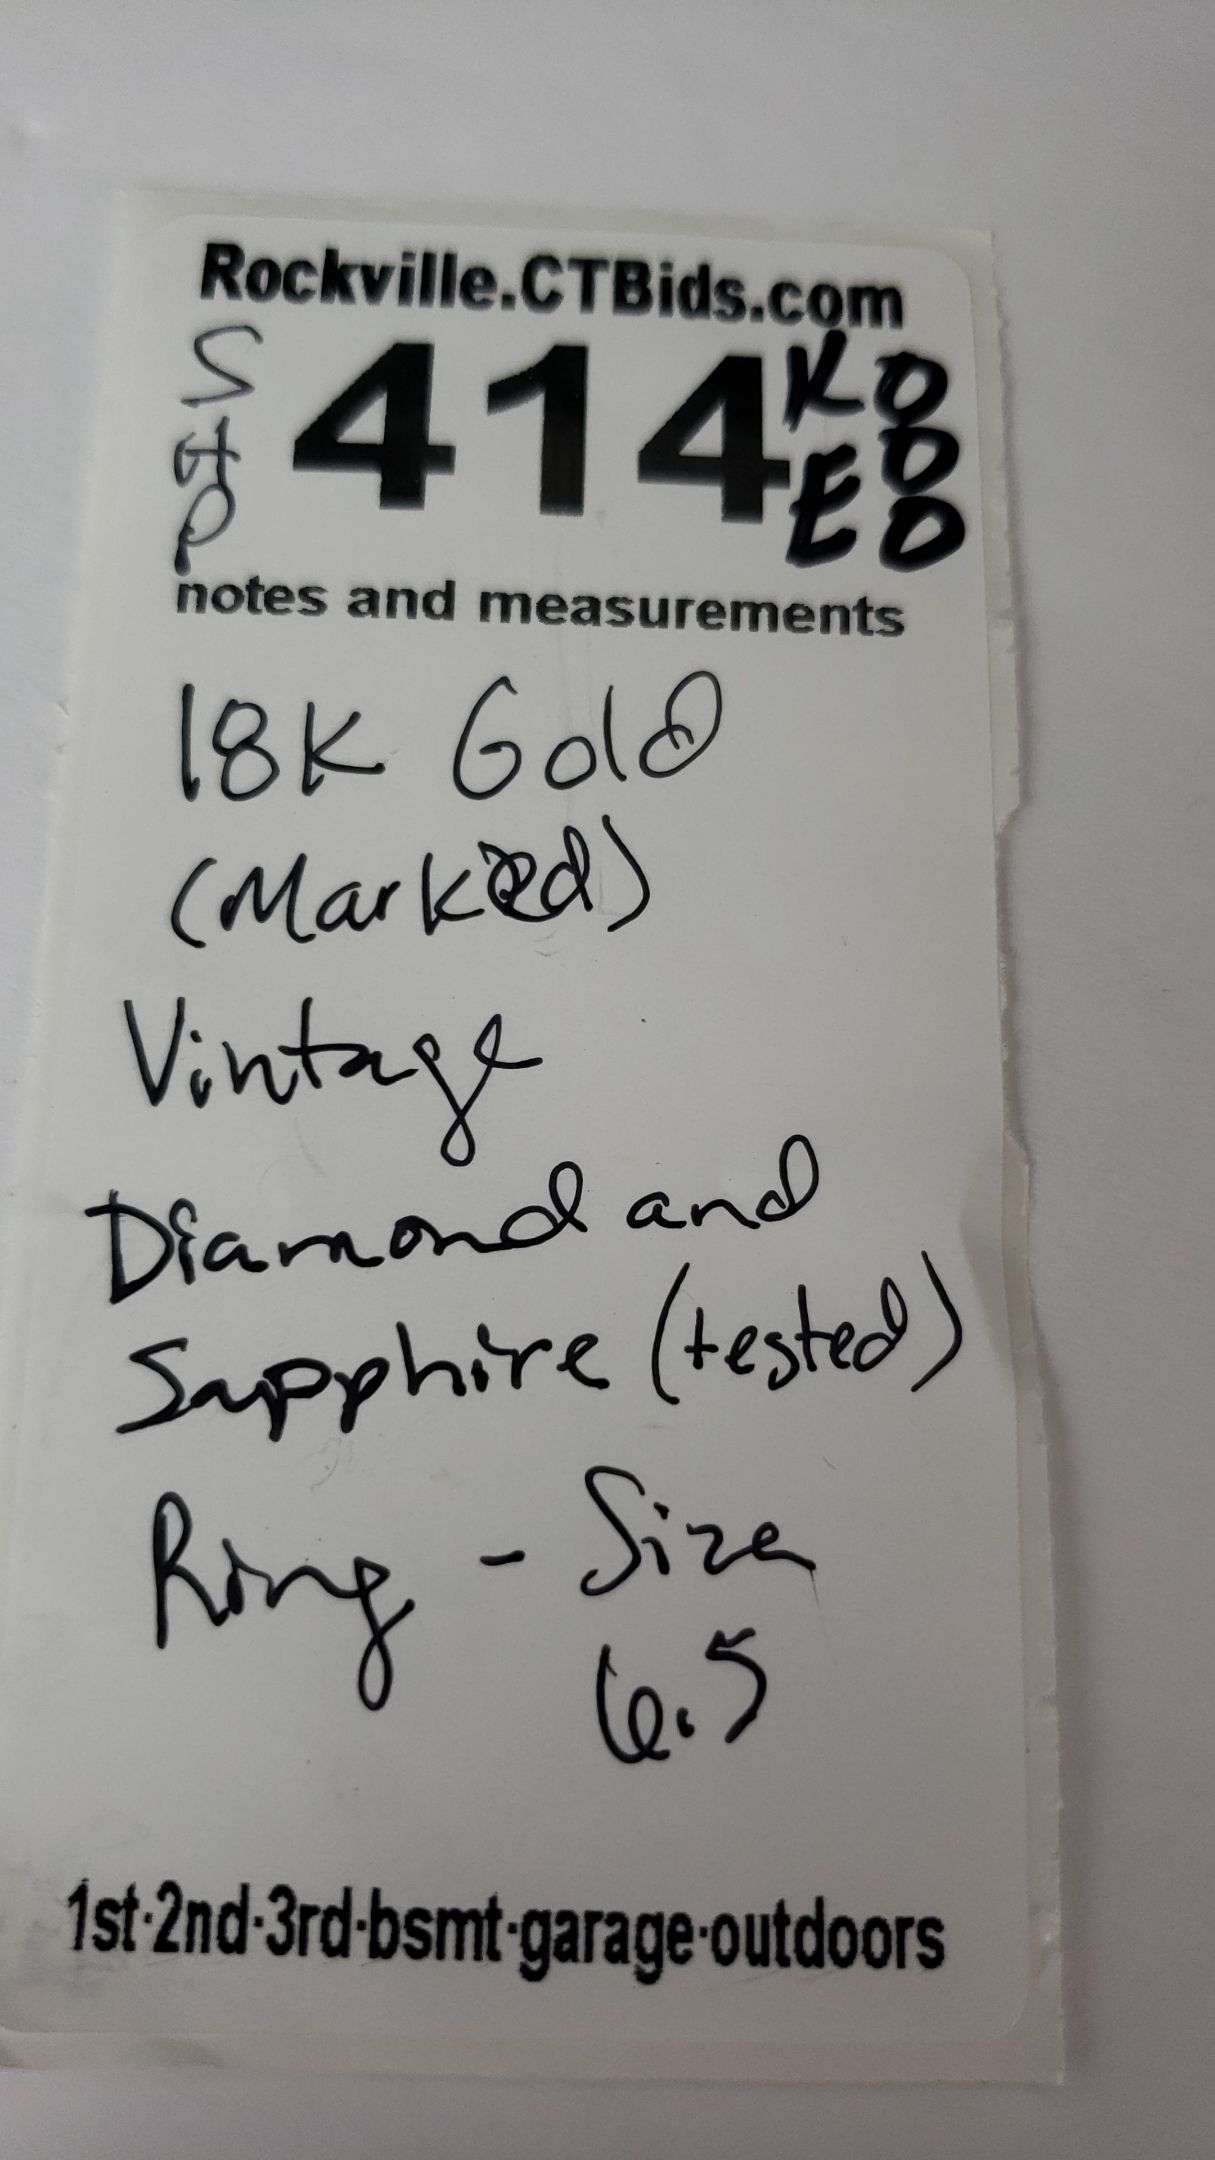 Rockville.CTBids.com
SHP 414 KE
notes and measurements
18K Gold
(Marked)
Vintage
Diamond and
Sapphire (tested)
Ring - Size
6.5
1st·2nd·3rd·bsmt·garage·outdoors